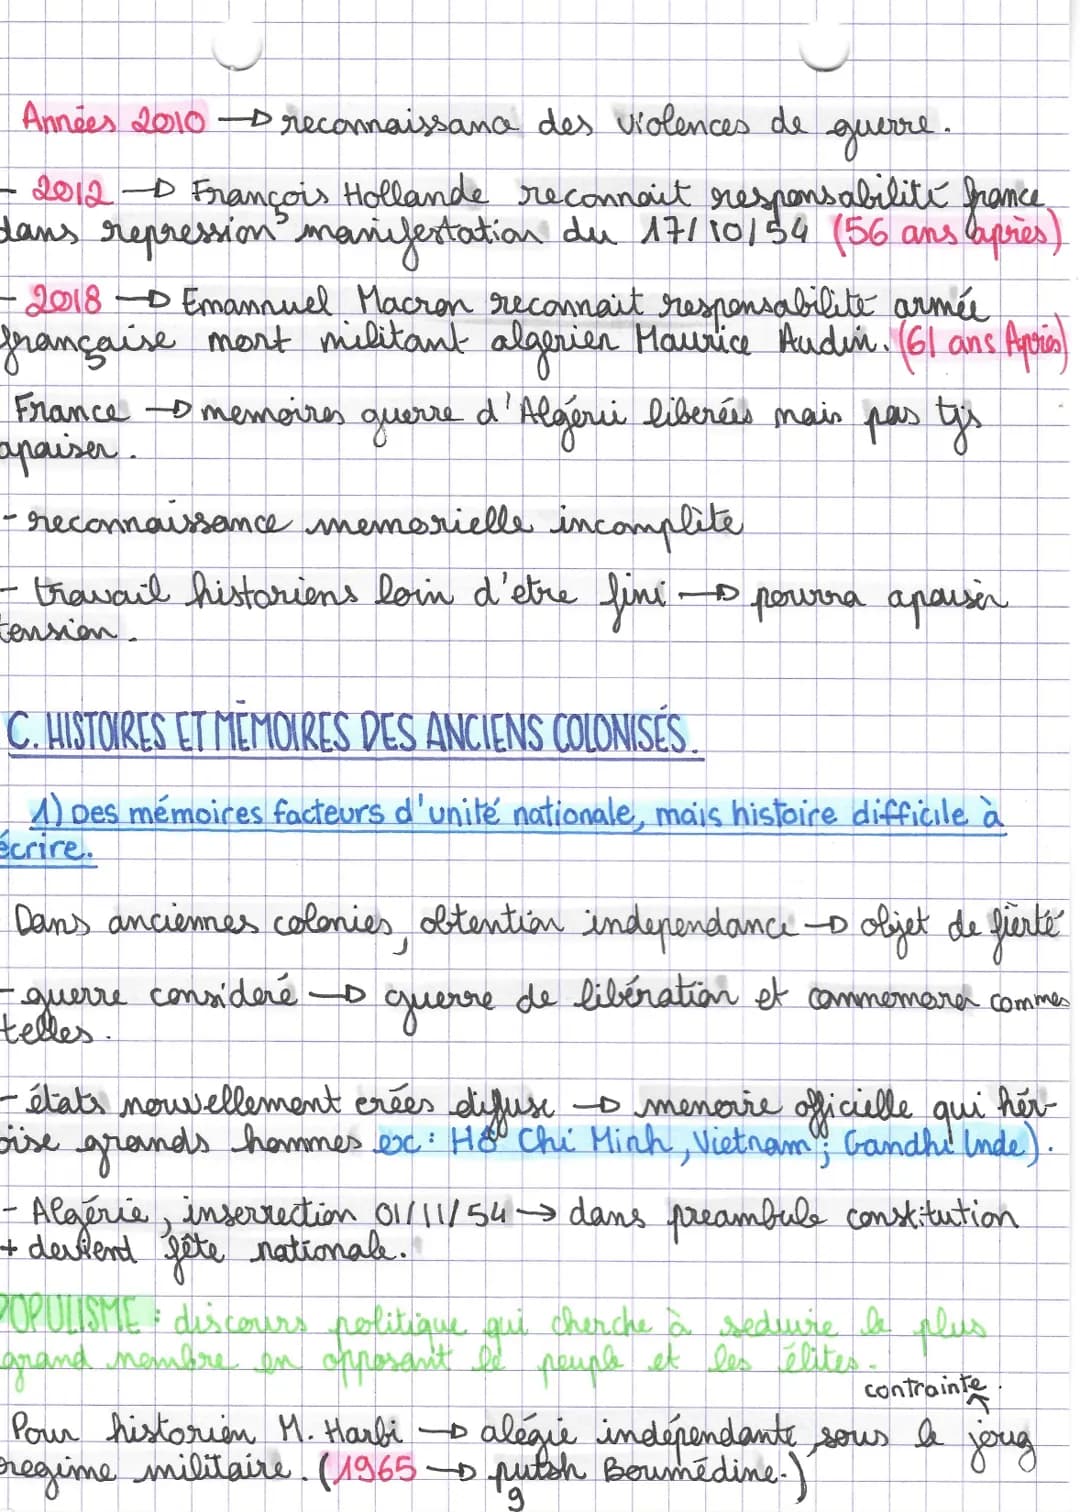 Années 2010 → reconnaissance des violences de guerre.
- 2012 → François Hollande reconnait responsabilité france
dans repression manifestation du 17/10/54 (56 ans après)
- 2018 → Emannuel Macron reconnait responsabilité armée
française mort militant algerien Maurice Audin. (61 ans Après)
France → memoires guerre d'Algérie liberées mais pas tjs
apaiser.
- reconnaissance memorielle incomplète
- travail historiens loin d'etre fini → pourra apaiser
tension.
C. HISTOIRES ET MÉMOIRES DES ANCIENS COLONISÉS.
1) Des mémoires facteurs d'unité nationale, mais histoire difficile à
écrire.
Dans anciennes colonies, obtention independance → objet de fierté
- guerre consideré → guerre de libération et commemorer commes
telles.
- états nouvellement crées difuse → memoire officielle qui hér-
oise grands hommes ex: Hô Chi Minh, Vietnam; Gandhi Inde).
- Algérie, inserrection 01/11/54 → dans preambule constitution
+ devient fête nationale.
POPULISME : discours politique qui cherche à seduire le plus
grand nombre en opposant le peuple et les élites.
contrainte
Pour historien M. Harbi → alégie indépendante sous le joug
regime militaire. (1965 → putsh Boumédine.)
g